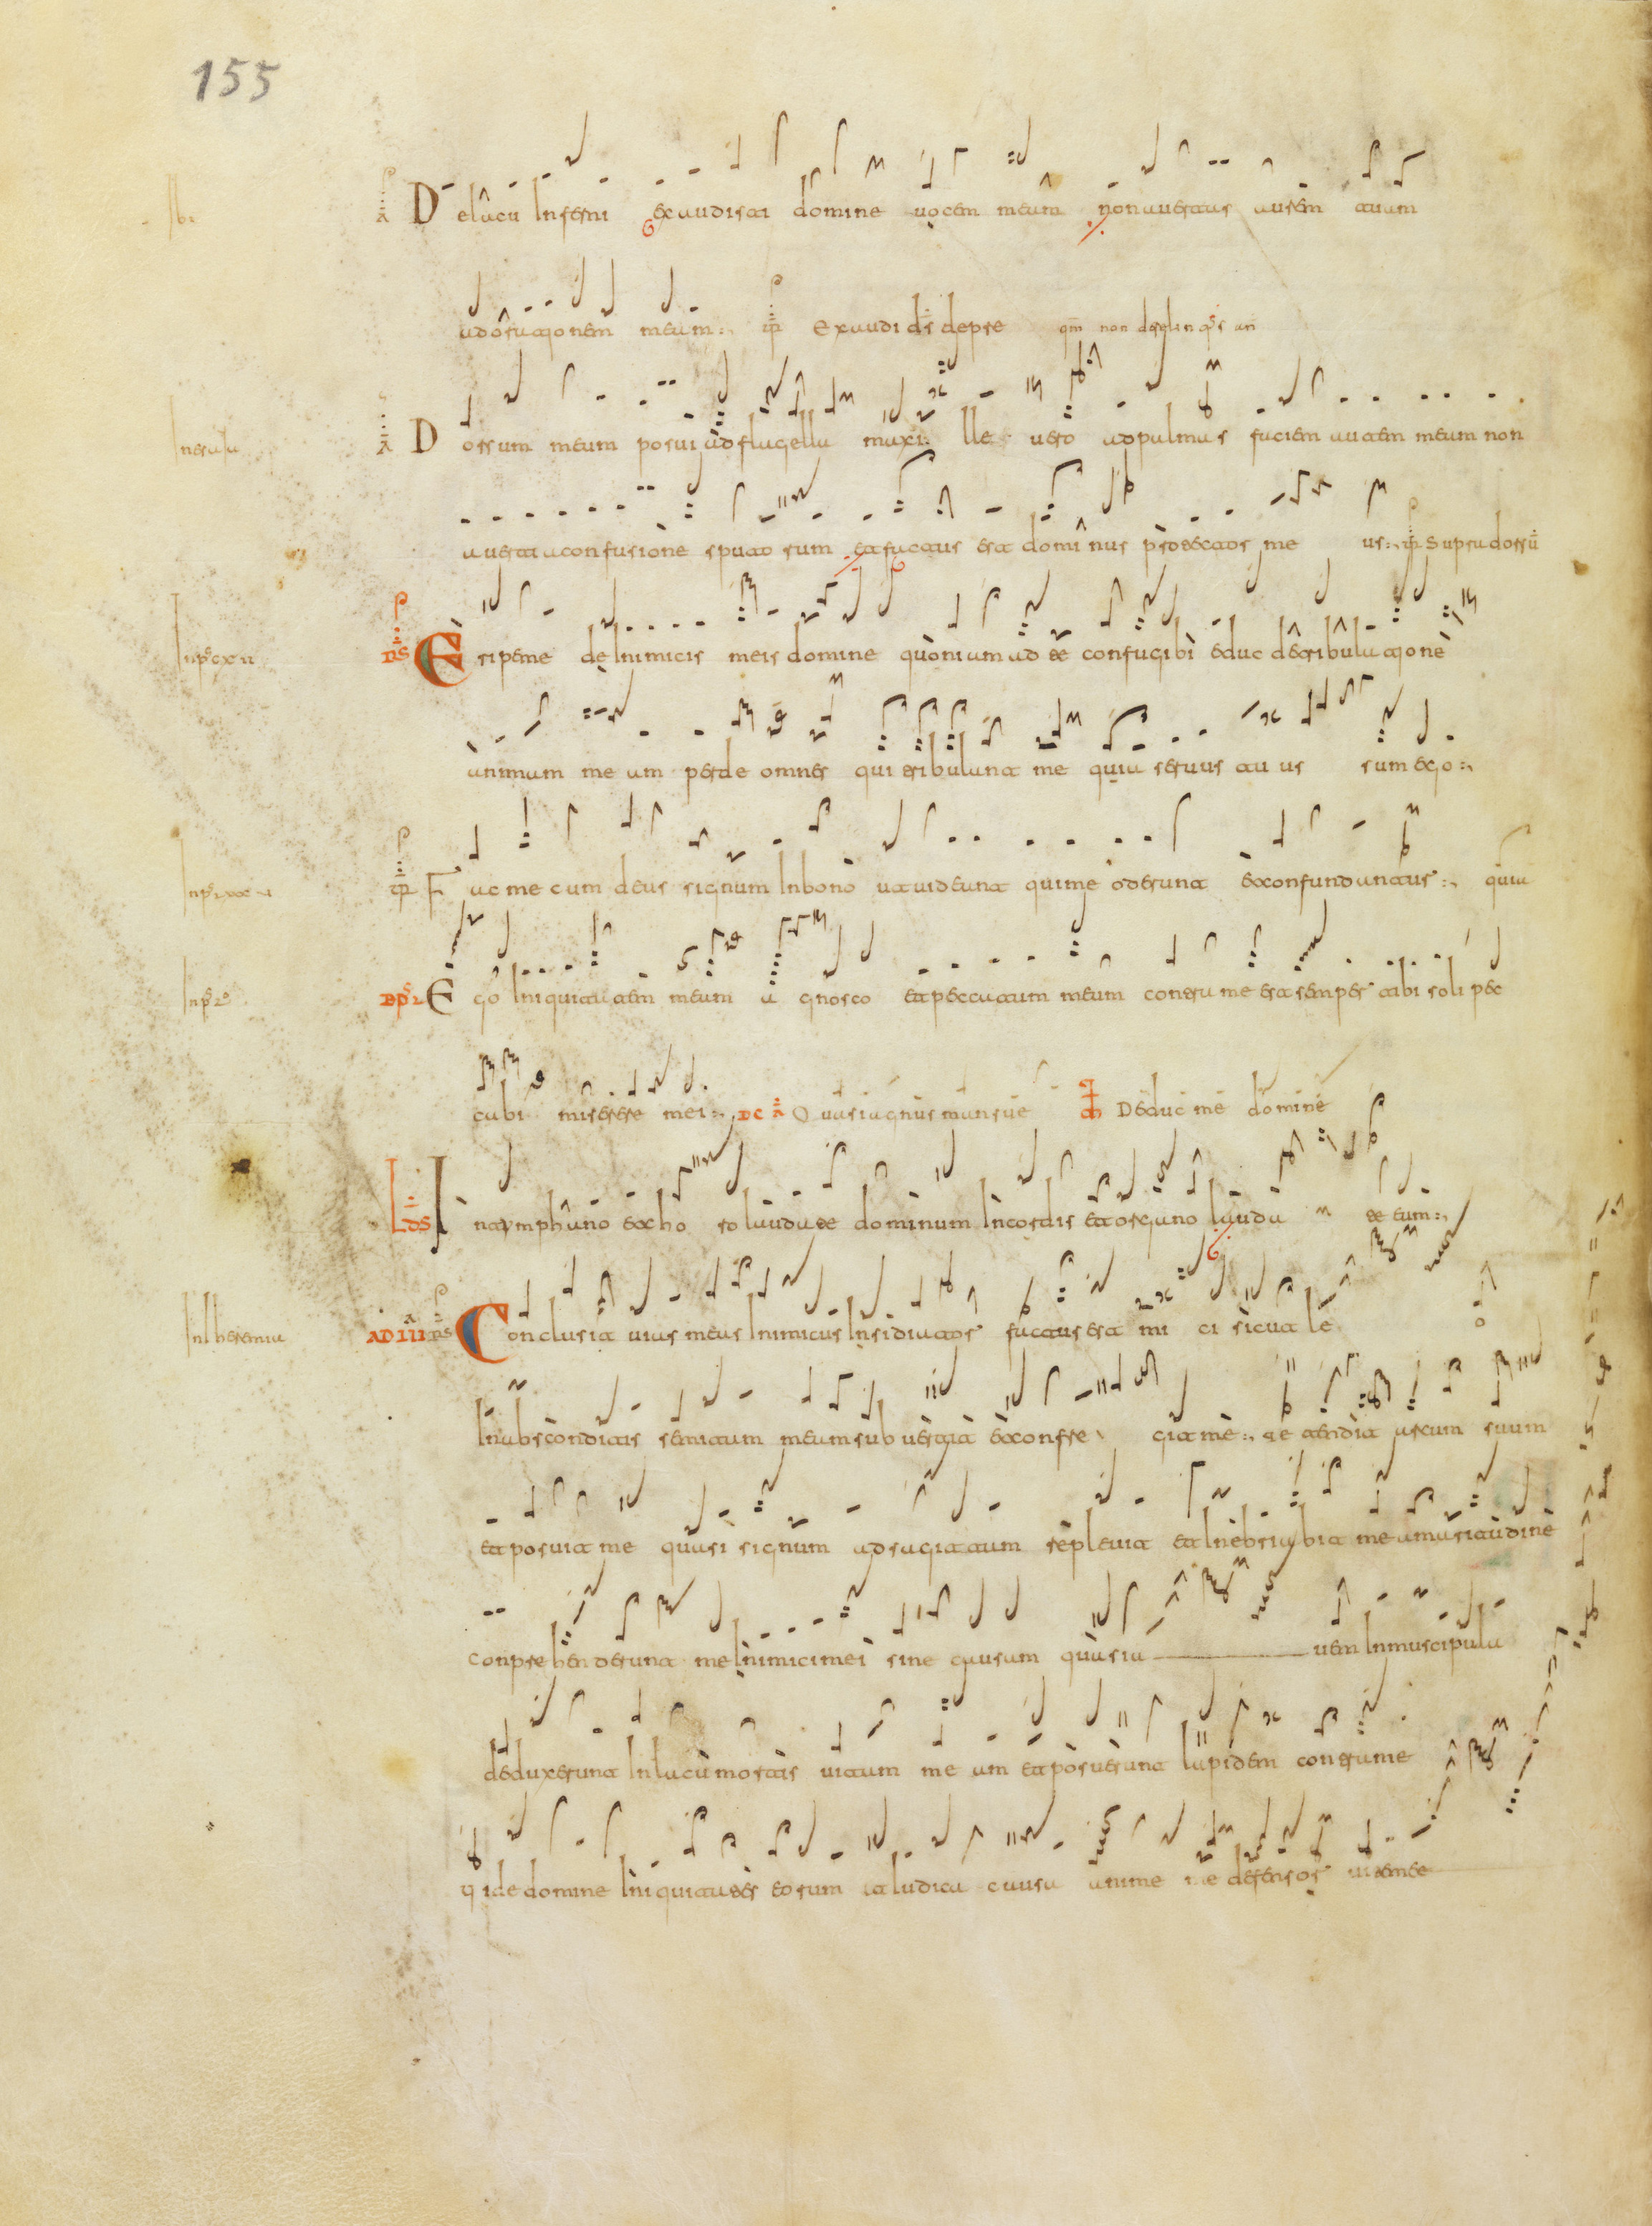 155
De lacu Inferni exaudisti domine uocem meam non auertas aurem tuam
ad oratjonem meam : VR Exaudi ds depre qm non derelinqs an
In esaia
A Dorsum meum posui ad flagella maxi lle uero ad palmas faciem autem meam non
auerti a confusione sputorum et factus est dominus protector me us : VR Supra dorsū
In ps cxlii
RS Eripe me de Inimicis meis domine quoniam ad te confugi tibi educ de tribulatjone
animam me am perde omnes qui tribulant me quia seruus tu us sum ego :
In ps lxxxv
VR Fac mecum deus signum In bono ut uideant qui me oderunt et confundantur : quia
In ps L
PS L Ego Iniquitatem meam a gnosco et peccatum meum contra me est semper tibi soli pec
cabi miserere mei : DC A Quasi agnus mansue Deduc me domine
Lds In tympano et choro laudate dominum In cordis et organo lauda te eum :
In Iheremia
AD III A RS Conclusit uias meas Inimicus Insidiator factus est mi ci sicut le
In absconditis semitam meam subuertit et confre git me : te tendit arcum suum
et posuit me quasi signum ad sagittam repleuit et Inebriabit me amaritudine
conprehenderunt me Inimici mei sine causam quasi a uem In muscipula
deduxerunt In lacu mortis uitam me am et posuerunt lapidem contra me
uide domine Iniquitates eorum et Iudica causa anime me defensor uite mee